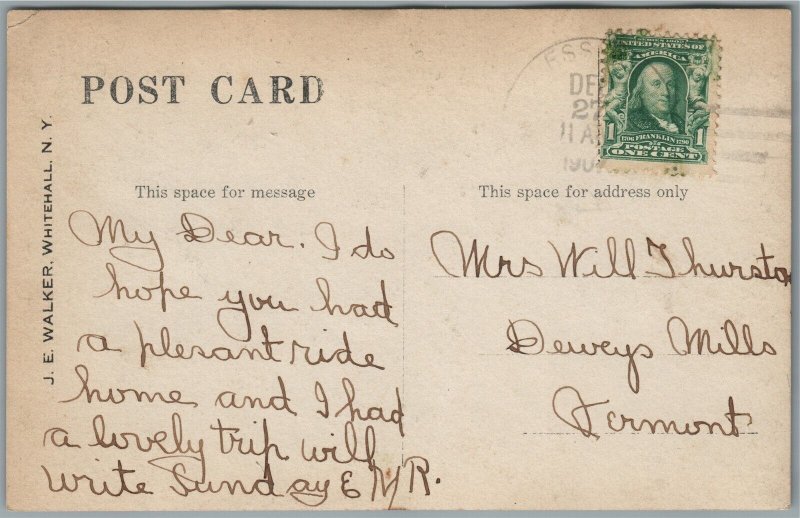 POST CARD
J. E. WALKER, WHITEHALL, N. Y.
ESS
DE
27
11 A
190
SERIES 1902
UNITED STATES OF
AMERICA
1 1
1706 FRANKLIN 1790
POSTAGE
ONE CENT
This space for message
My Dear. I do
hope you had
a plesant ride
home and I had
a lovely trip will
write Sunday E M R.
This space for address only
Mrs Will Thurston
Deweys Mills
Vermont